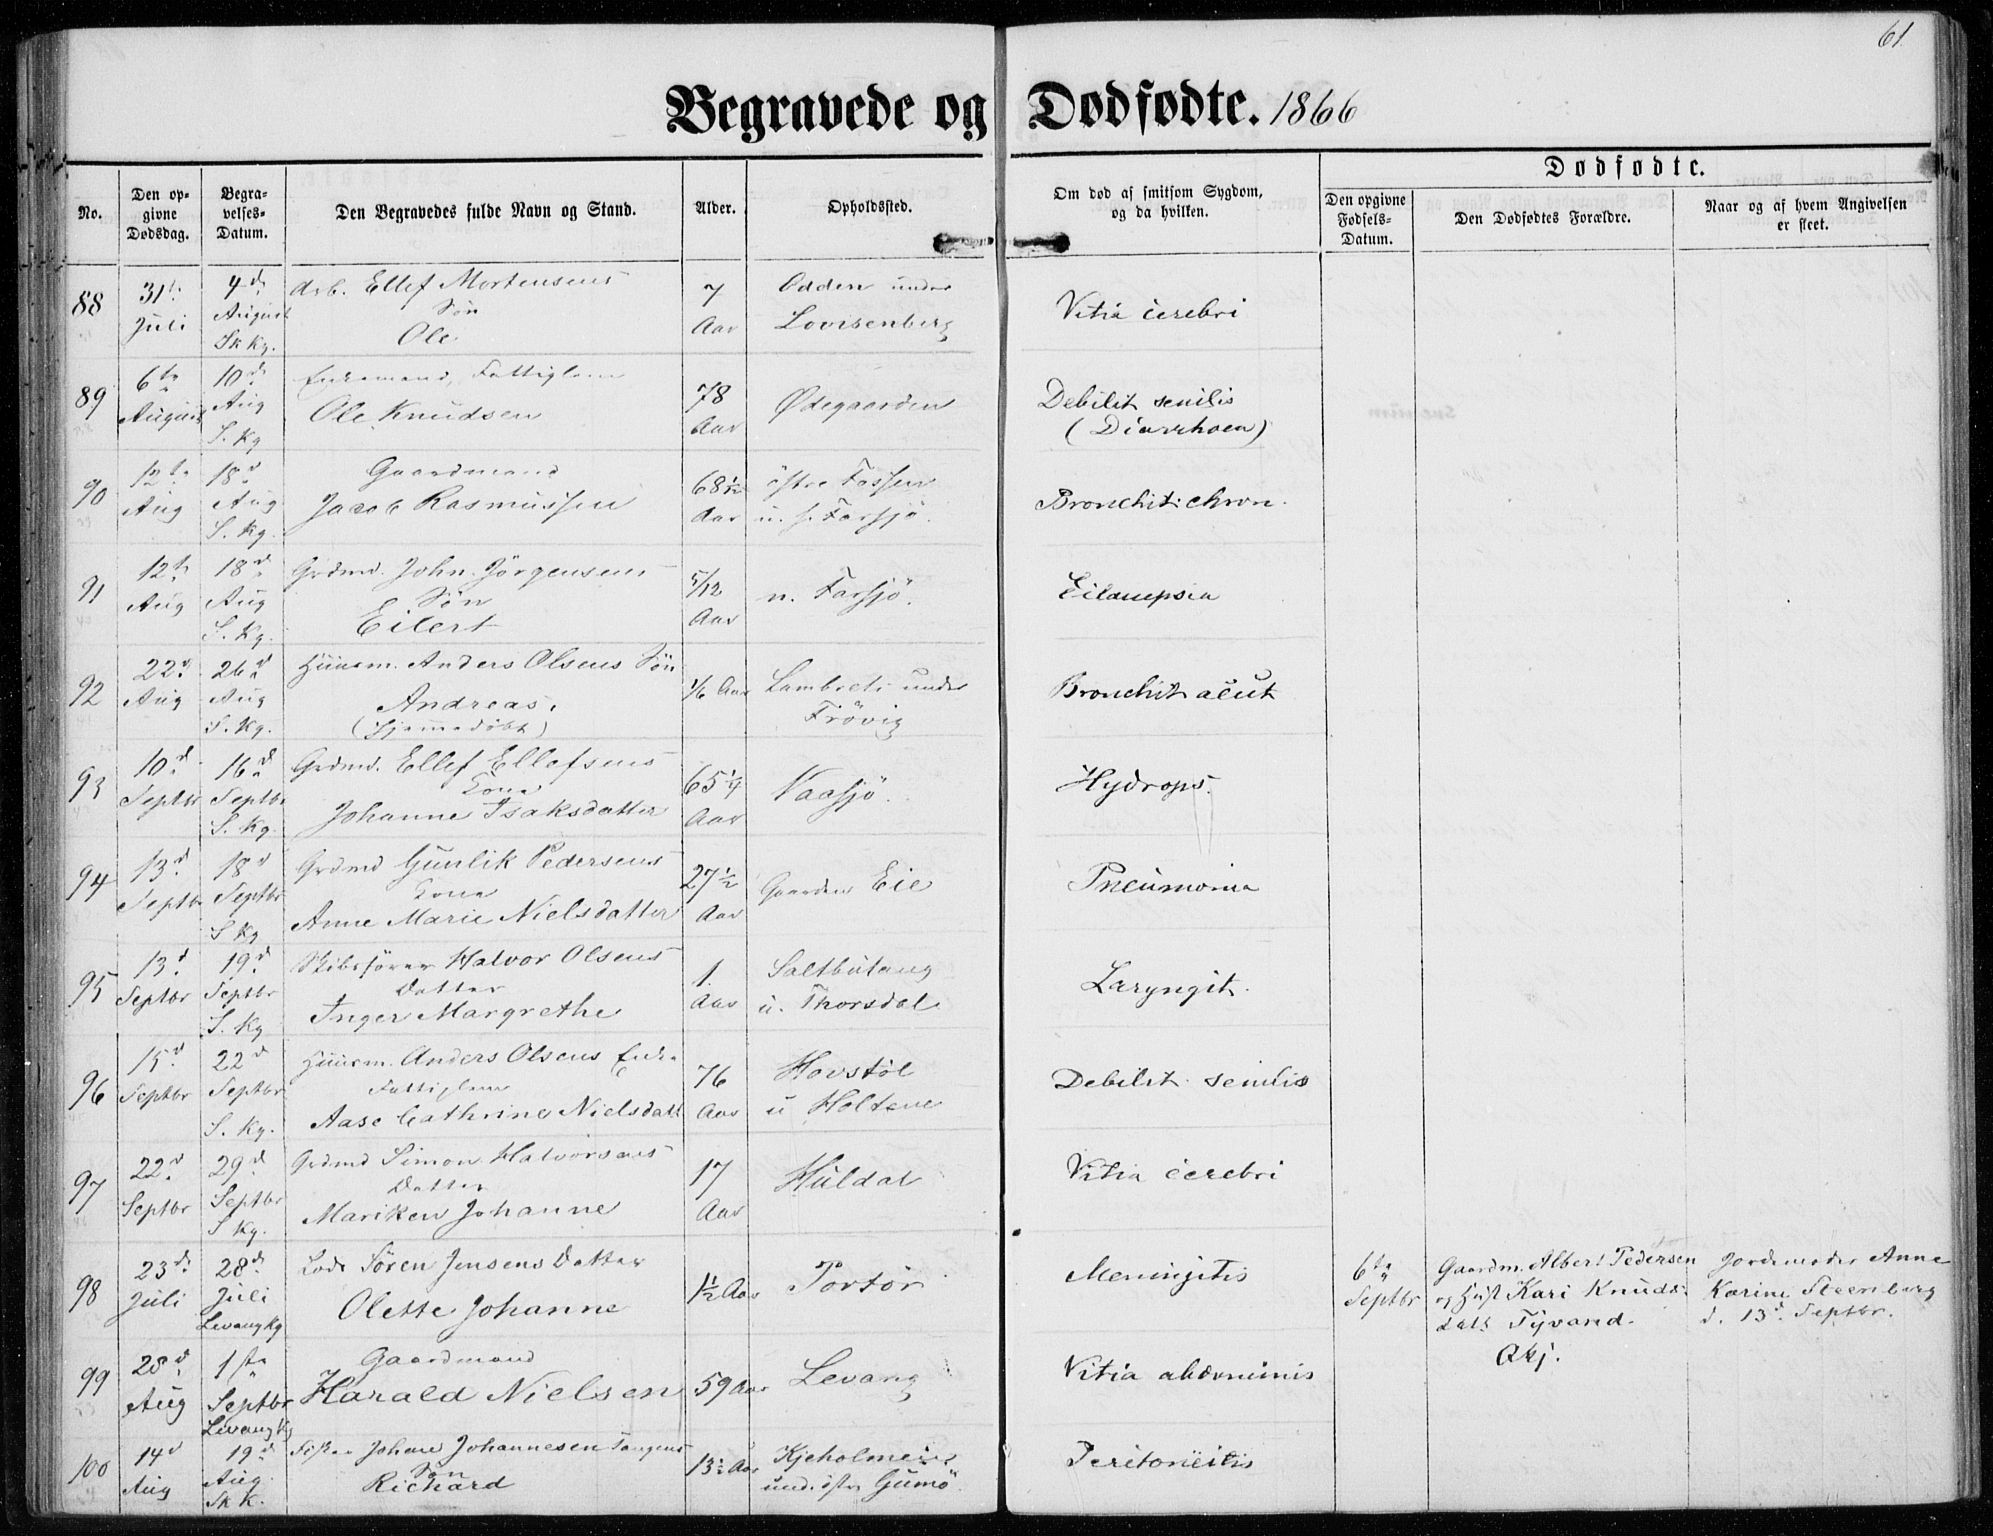 61
Begravede og Dødfødte. 1866
No.
Den opgivne Dødsdag.
Begravelses-Datum.
Den Begravedes fulde Navn og Stand.
Alder.
Opholdssted.
Om død af smitsom Sygdom, og da hvilken.
Dødfødte.
Den opgivne Fødsels-Datum.
Den Dødfødtes Forældre.
Naar og af hvem Angivelsen er skeet.
88
31te Juli
4de August Sk Kg.
Arb. Ellef Mortensens
Søn
Ole
7 Aar
Odden under
Lovisenberg
Vitia cerebri
89
6te August
10de Aug S. Kg
Enkemand, Fattiglem
Ole Knudsen
78 Aar
Ødegaarden
Debilit senilis
(Diarrhoea)
90
12te Aug
18d Aug S. Kg.
Gaardmand
Jacob Rasmussen
68 1/2 Aar
östre Fossen
u. s. Farsjö.
Bronchit: chron.
91
12te Aug
18d Aug S. Kg.
Grdmd. John Jörgensens
Søn
Eilert
5/12 Aar
n. Farsjö.
92
22d Aug
26d Aug S. Kg.
Huusm. Anders Olsens Søn
Andreas.
(hjemmedöbt)
1/6 Aar
under
Frövig
Bronchit acut
93
10d Septbr
16d Septbr S. Kg.
Grdmd. Ellef Ellefsens
Kone
Johanne Isaksdatter
65 1/4 Aar
Vaasjö.
Hydrops.
94
13d Septbr
18d Septbr S Kg
Grdmd Gunlik Pedersens
Kone
Anne Marie Nielsdatter
27 1/2 Aar
Gaarden Eie
Pneumonia
95
13d Septbr
19d Septbr S. Kg
Skibsförer Halvor Olsens
Datter
Inger Margrethe
1. Aar
Saltbutang
u. Thorsdal
Laryngit.
96
15d Septbr
22d Septbr S. Kg.
Huusm. Anders Olsens Enke
Fattiglem
Aase Cathrine Nielsdatt
76 Aar
Hovstöl
u Holtene
Debilit. senilis
97
22d Septbr
29d Septbr S Kg.
Grdmd Simon Halvorsens
Datter
Mariken Johanne
17 Aar
Huldal
Vitia cerebri
98
23de Juli
28de Juli Levang Kg
Lods Sören Jensens Datter
Olette Johanne
1 1/2 Aar
Portör
Meningitis
6te Septbr
Gaardm. Albert Pedersen
og Hust Kari Knuds-
datt Tyvand.
Jordemoder Anne
Karine Steenberg
d. 13d Septbr.
99
28d Aug
1ste Septbr Levang Kg
Gaardmand
Harald Nielsen
59 Aar
Levang
Vitia abdominis
100
14d Aug
19d Aug. Sk K.
Johan Johannesen Tangens
Søn
Richard
13 1/2 Aar
Kjeholmen
und. östre Gumö
Peritonitis